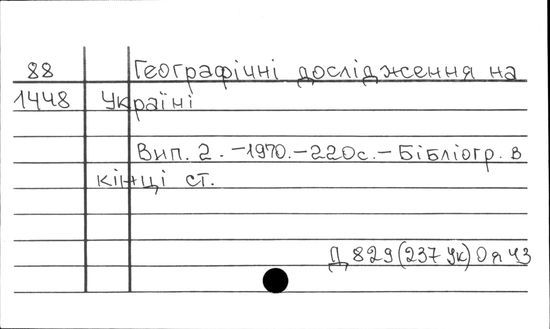 88 Географічні дослідження на
1448 Україні
Вип. 2. -1970.-220с.- Бібліогр. в
кінці ст.
Д 829(237 Ук) О я ЧЗ